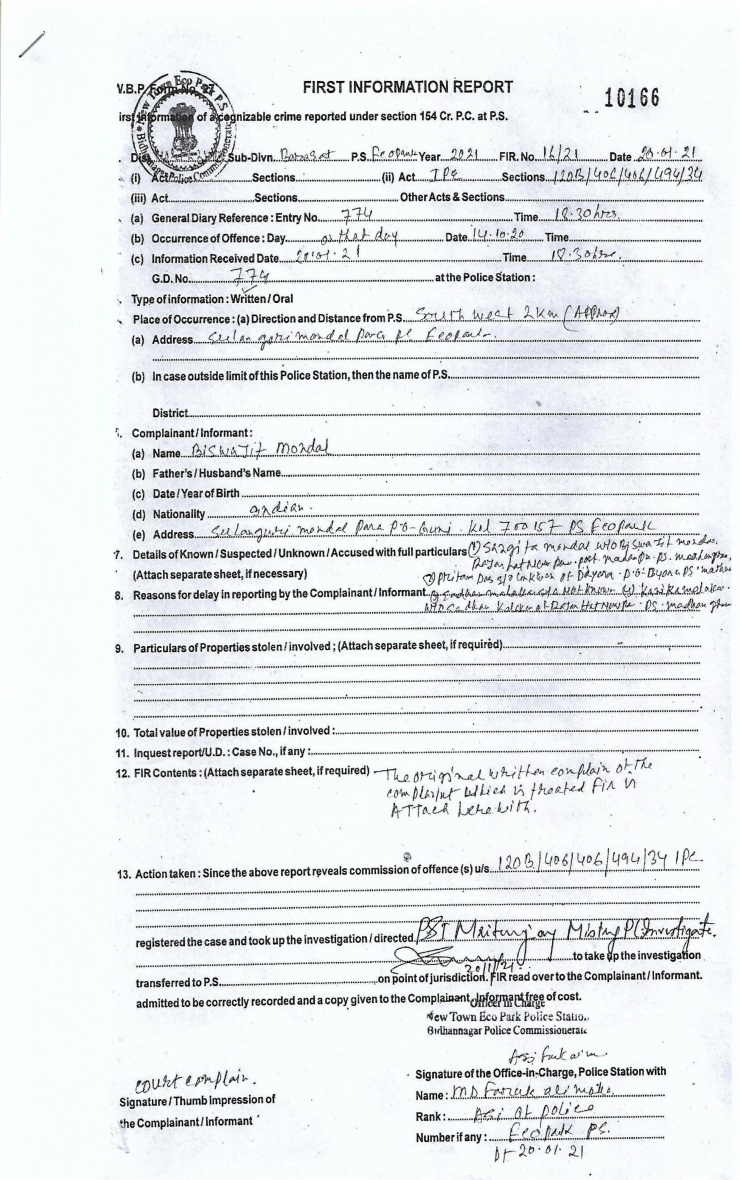 V.B.P. Form No. 27
FIRST INFORMATION REPORT
10166
First Information of a cognizable crime reported under section 154 Cr. P.C. at P.S.
Sub-Divn. Barasat P.S. Ecopark Year 2021 FIR. No. 16/21 Date 20.01.21
(i) Act Sections (ii) Act IPC Sections 120B/406/406/494/34
(iii) Act Sections Other Acts & Sections
(a) General Diary Reference : Entry No. 774 Time 18.30 hrs.
(b) Occurrence of Offence : Day on that day Date 14.10.20 Time
(c) Information Received Date 20.01.21 Time 18.30 hrs.
G.D. No. 774 at the Police Station :
Type of information : Written / Oral
Place of Occurrence : (a) Direction and Distance from P.S. South West 2 Km (Approx)
(a) Address mondal Para PS Ecopark.
(b) In case outside limit of this Police Station, then the name of P.S.
District
Complainant / Informant :
(a) Name Biswajit Mondal
(b) Father's / Husband's Name
(c) Date / Year of Birth
(d) Nationality Indian.
(e) Address mondal Para PO- Kol 700157 PS Ecopark
7. Details of Known / Suspected / Unknown / Accused with full particulars (1) mondal W/O Biswajit mondal
(Attach separate sheet, if necessary) (2) Pritam Das S/O
8. Reasons for delay in reporting by the Complainant / Informant Not Known
9. Particulars of Properties stolen / involved ; (Attach separate sheet, if required)
10. Total value of Properties stolen / involved :
11. Inquest report/U.D. : Case No., if any :
12. FIR Contents : (Attach separate sheet, if required) - The original written complain of the
complaint which is treated FIR is
Attach herewith.
13. Action taken : Since the above report reveals commission of offence (s) u/s 120B/406/406/494/34 IPC.
registered the case and took up the investigation / directed PSI Mritunjoy Mistry Pl. Investigate.
to take up the investigation
20/1/21.
transferred to P.S. on point of jurisdiction. FIR read over to the Complainant / Informant.
admitted to be correctly recorded and a copy given to the Complainant Informant free of cost.
Officer in Charge
New Town Eco Park Police Station
Bidhannagar Police Commissionerate
court complain.
Signature / Thumb Impression of
the Complainant / Informant
Signature of the Office-in-Charge, Police Station with
Name : MD Faruk
Rank : ASI of police
Number if any : Ecopark PS.
Dt- 20.01.21